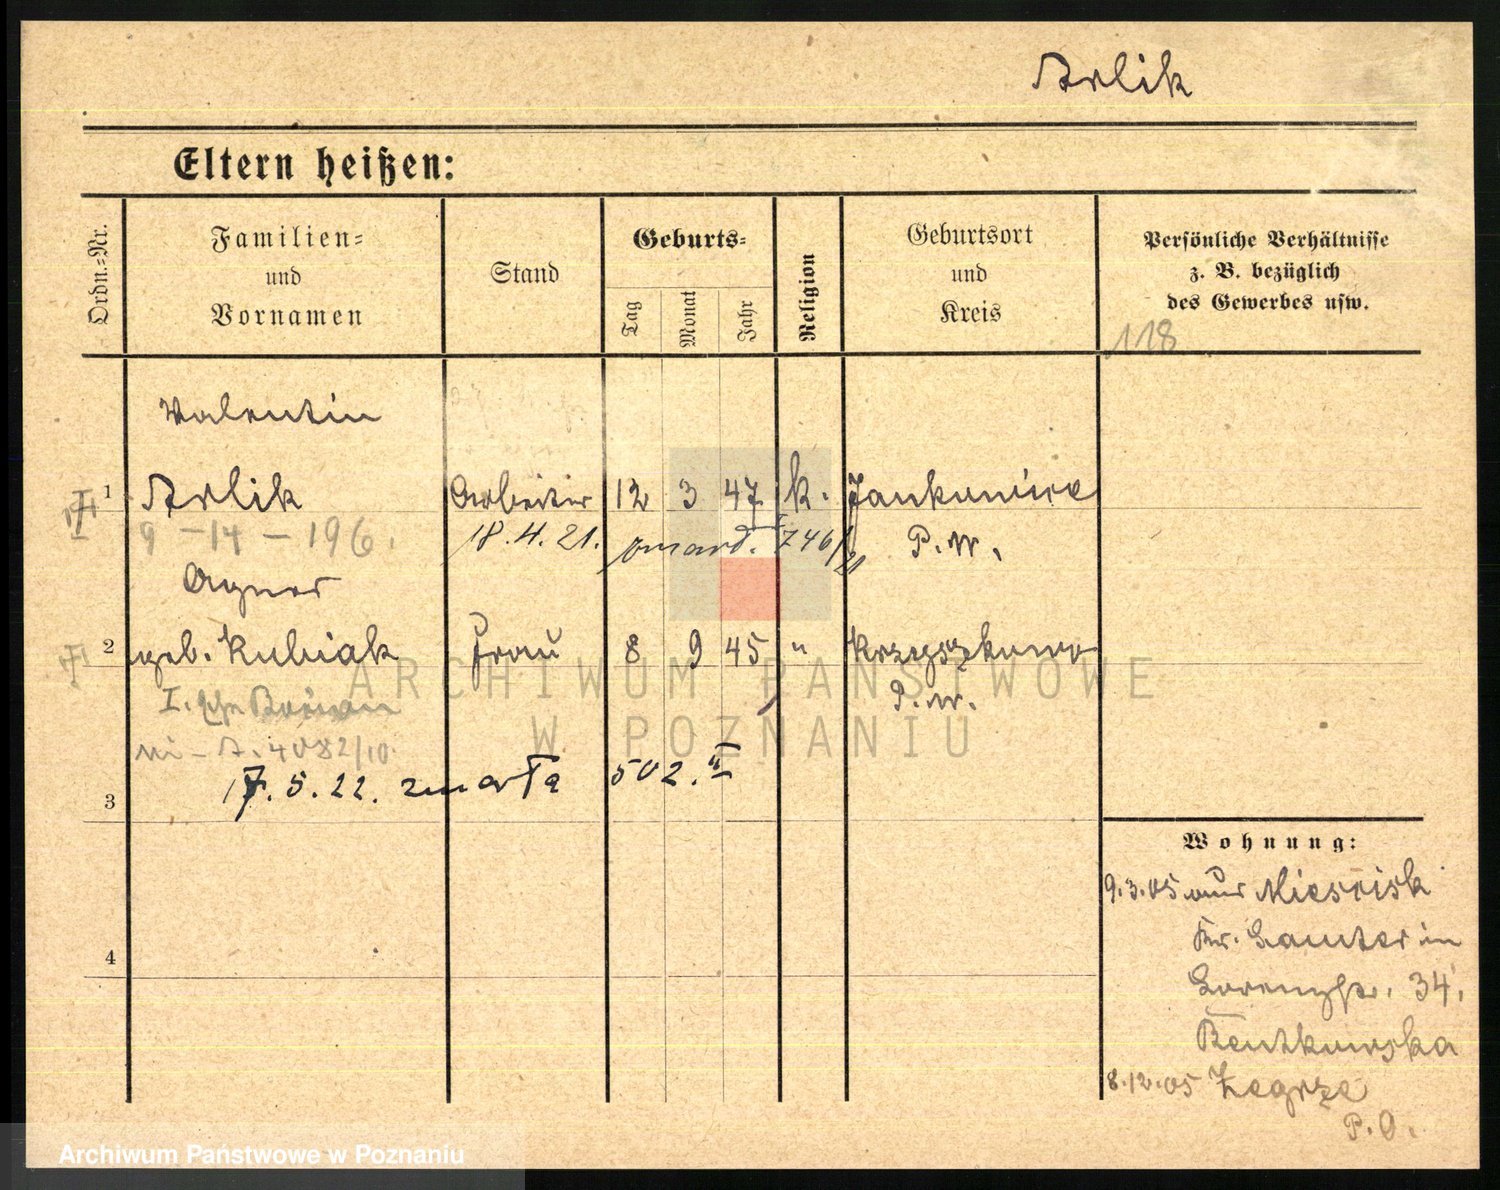 Arlik
Eltern heißen:
Ordn.-Nr.
Familien-
und
Vornamen
Stand
Geburts-
Tag
Monat
Jahr
Religion
Geburtsort
und
Kreis
Persönliche Verhältnisse
z. B. bezüglich
des Gewerbes usw.
118
Valentin
1 Arlik Arbeiter 12 3 47 k. Jankowice
9 - 14 - 196. 18.4.21. zmarł. 746/21 P.W.
Agnes
2 geb. Kubiak Frau 8 9 45 " Krzyszkowo
I. P.W.
A. 4082/10.
17.5.22. zmarła 502.II
3
Wohnung:
9.3.05 aus Miescisk
4 Kr. Samter in
Lorenzstr. 34.
Bentkowska
8.12.05 Zegrze
P.O.
ARCHIWUM PAŃSTWOWE
W POZNANIU
Archiwum Państwowe w Poznaniu